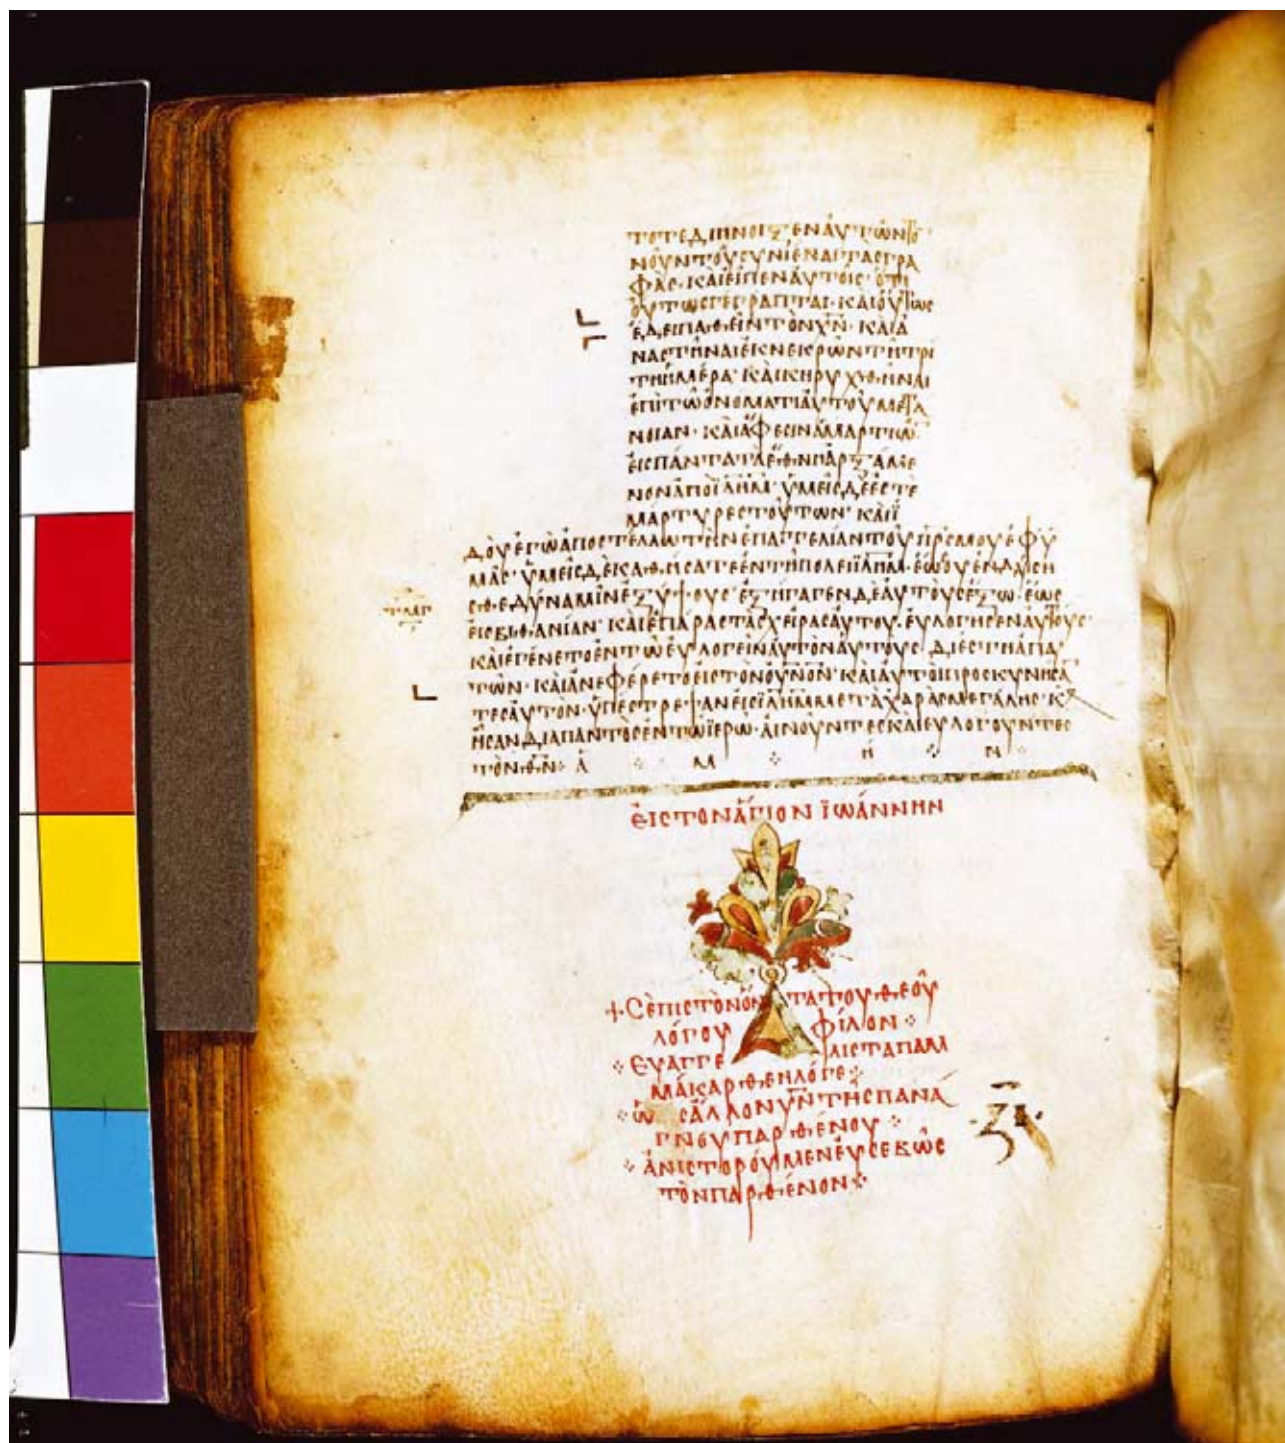 τότε διήνοιξεν αὐτῶν τὸ
νοῦν τοῦ συνιέναι τὰς γρα
φάς· καὶ εἶπεν αὐτοῖς· ὅτι
οὕτως γέγραπται· καὶ οὕτως
ἔδει παθεῖν τὸν χ̅ν̅· καὶ ἀ
ναστῆναι ἐκ νεκρῶν τῇ τρί
τῃ ἡμέρα· καὶ κηρυχθῆναι
ἐπὶ τῶ ὀνόματι αὐτοῦ μετά
νοιαν· καὶ ἄφεσιν ἁμαρτιῶ̅
εἰς πάντα τὰ ἔθνη ἀρξάμε
νον ἀπὸ ϊ̅λ̅η̅μ̅· ὑμεῖς δὲ ἐστὲ
μάρτυρες τούτων· καὶ ἰ
δοὺ ἐγὼ ἀποστέλλω τὴν ἐπαγγελίαν τοῦ π̅ρ̅ς̅ μου ἐφ ὑ
μᾶς· ὑμεῖς δὲ καθήσατε ἐν τῇ πόλει ϊ̅λ̅η̅μ̅· ἕως οὗ ἐνδύση
σθε δύναμιν ἐξ ὕψους· ἐξήγαγεν δὲ αὐτοὺς ἔξω· ἕως
εἰς βιθανίαν· καὶ ἐπάρας τὰς χεῖρας αὐτοῦ· εὐλόγησεν αὐτούς·
καὶ ἐγένετο ἐν τῶ εὐλογεῖν αὐτὸν αὐτούς· διέστη ἀπ αὐ
τῶν· καὶ ἀνεφέρετο εἰς τὸν οὐ̅ν̅ο̅ν̅· καὶ αὐτοὶ προσκυνήσα̅
τες αὐτόν· ὑπέστρεψαν εἰς ϊ̅λ̅η̅μ̅ μετὰ χαρᾶς μεγάλης· κ
ἦσαν διαπαντὸς ἐν τῶ ϊερῶ· αἰνοῦντες καὶ εὐλογοῦντες
τὸν θ̅ν̅· ἀ μ ή ν
εἰς τὸν ἅγιον ϊωάννην
+ Σὲ πιστὸν ὄντα τοῦ θεοῦ
λόγου φίλον
Εὐαγγελιστὰ παμ
μάκαρ θεηλόγε
ὡς ἄλλον υ̅ν̅ τῆς πανά
γνου παρθένου
ἀνιστοροῦμεν εὐσεβῶς
τὸν παρθένον